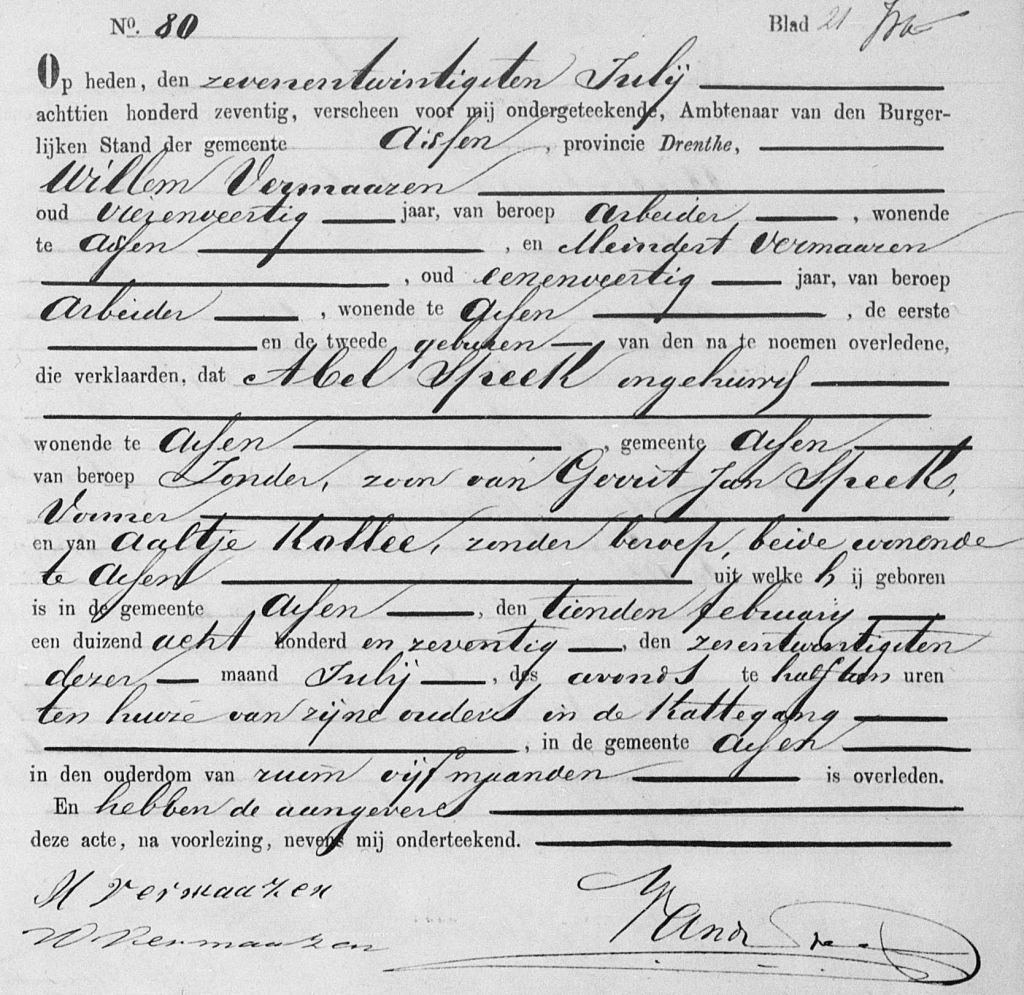 No. 80 Blad 21
Op heden, den zevenentwintigsten Julij
achttien honderd zeventig, verscheen voor mij ondergeteekende, Ambtenaar van den Burger-
lijken Stand der gemeente Assen, provincie Drenthe,
Willem Vermaazen
oud vierenveertig jaar, van beroep Arbeider, wonende
te Assen, en Meindert Vermaazen
, oud eenenveertig jaar, van beroep
Arbeider, wonende te Assen, de eerste
en de tweede geburen van den na te noemen overledene,
die verklaarden, dat Abel Speek ongehuwd
wonende te Assen, gemeente Assen
van beroep Zonder, zoon van Gerrit Jan Speek,
Vormer
en van Aaltje Kollee, zonder beroep, beide wonende
te Assen uit welke h ij geboren
is in de gemeente Assen, den tienden february
een duizend acht honderd en zeventig, den zesentwintigsten
dezer maand Julij, des avonds te half tien uren
ten huize van zijne ouders in de Kattegang
, in de gemeente Assen
in den ouderdom van ruim vijf maanden is overleden.
En hebben de aangevers
deze acte, na voorlezing, nevens mij onderteekend.
M Vermaazen
W Vermaazen